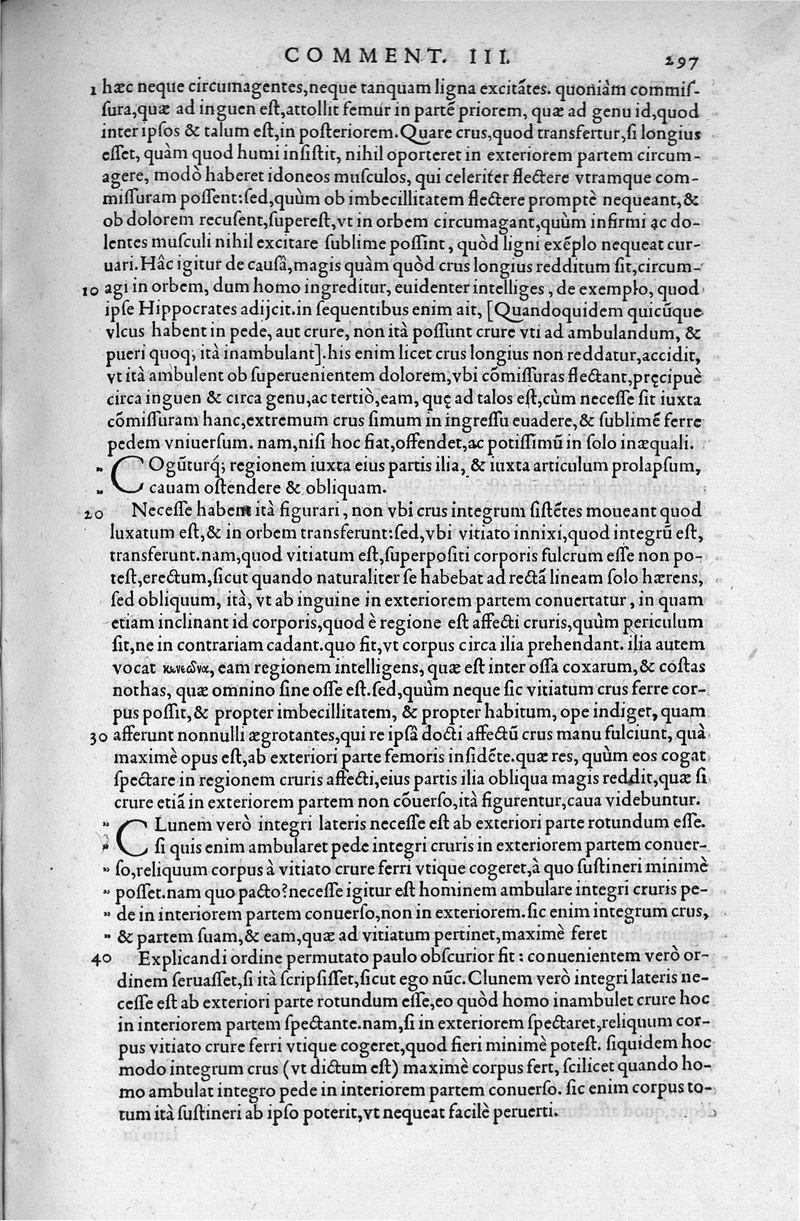 COMMENT. III. 297
1 hæc neque circumagentes,neque tanquam ligna excitãtes. quoniàm commiſ-
ſura,quæ ad inguen eſt,attollit femur in partẽ priorem, quæ ad genu id,quod
inter ipſos & talum eſt,in poſteriorem.Quare crus,quod transfertur,ſi longius
eſſet, quàm quod humi inſiſtit, nihil oporteret in exteriorem partem circum-
agere, modò haberet idoneos muſculos, qui celeriter flectere vtramque com-
miſſuram poſſent:ſed,quùm ob imbecillitatem flectere promptè nequeant,&
ob dolorem recuſent,ſupereſt,vt in orbem circumagant,quùm infirmi ac do-
lentes muſculi nihil excitare ſublime poſſint, quòd ligni exẽplo nequeat cur-
uari.Hâc igitur de cauſâ,magis quàm quòd crus longius redditum ſit,circum-
10 agi in orbem, dum homo ingreditur, euidenter intelliges, de exemplo, quod
ipſe Hippocrates adijcit.in ſequentibus enim ait, [Quandoquidem quicũque
vlcus habent in pede, aut crure, non ità poſſunt crure vti ad ambulandum, &
pueri quoq; ità inambulant].his enim licet crus longius non reddatur,accidit,
vt ità ambulent ob ſuperuenientem dolorem,vbi cõmiſſuras flectant,pręcipuè
circa inguen & circa genu,ac tertiò,eam, quę ad talos eſt,cùm neceſſe ſit iuxta
cõmiſſuram hanc,extremum crus ſimum in ingreſſu euadere,& ſublimẽ ferre
pedem vniuerſum. nam,niſi hoc fiat,offendet,ac potiſſimũ in ſolo inæquali.
" COgũturq́; regionem iuxta eius partis ilia, & iuxta articulum prolapſum,
" cauam oſtendere & obliquam.
20 Neceſſe habent ità figurari, non vbi crus integrum ſiſtẽtes moueant quod
luxatum eſt,& in orbem transferunt:ſed,vbi vitiato innixi,quod integrũ eſt,
transferunt.nam,quod vitiatum eſt,ſuperpoſiti corporis fulcrum eſſe non po-
teſt,erectum,ſicut quando naturaliter ſe habebat ad rectã lineam ſolo hærens,
ſed obliquum, ità, vt ab inguine in exteriorem partem conuertatur, in quam
etiam inclinant id corporis,quod è regione eſt affecti cruris,quùm periculum
ſit,ne in contrariam cadant.quo fit,vt corpus circa ilia prehendant. ilia autem
vocat κενεῶνα, eam regionem intelligens, quæ eſt inter oſſa coxarum,& coſtas
nothas, quæ omnino ſine oſſe eſt.ſed,quùm neque ſic vitiatum crus ferre cor-
pus poſſit,& propter imbecillitatem, & propter habitum, ope indiget, quam
30 afferunt nonnulli ægrotantes,qui re ipſâ docti affectũ crus manu fulciunt, quà
maximè opus eſt,ab exteriori parte femoris inſidẽte.quæ res, quùm eos cogat
ſpectare in regionem cruris affecti,eius partis ilia obliqua magis reddit,quæ ſi
crure etiã in exteriorem partem non cõuerſo,ità figurentur,caua videbuntur.
" CLunem verò integri lateris neceſſe eſt ab exteriori parte rotundum eſſe.
" ſi quis enim ambularet pede integri cruris in exteriorem partem conuer-
" ſo,reliquum corpus à vitiato crure ferri vtique cogeret,à quo ſuſtineri minimè
" poſſet.nam quo pacto?neceſſe igitur eſt hominem ambulare integri cruris pe-
" de in interiorem partem conuerſo,non in exteriorem.ſic enim integrum crus,
" & partem ſuam,& eam,quæ ad vitiatum pertinet,maximè feret
40 Explicandi ordine permutato paulo obſcurior fit: conuenientem verò or-
dinem ſeruaſſet,ſi ità ſcripſiſſet,ſicut ego nũc.Clunem verò integri lateris ne-
ceſſe eſt ab exteriori parte rotundum eſſe,eo quòd homo inambulet crure hoc
in interiorem partem ſpectante.nam,ſi in exteriorem ſpectaret,reliquum cor-
pus vitiato crure ferri vtique cogeret,quod fieri minimè poteſt. ſiquidem hoc
modo integrum crus (vt dictum eſt) maximè corpus fert, ſcilicet quando ho-
mo ambulat integro pede in interiorem partem conuerſo. ſic enim corpus to-
tum ità ſuſtineri ab ipſo poterit,vt nequeat facilè peruerti.